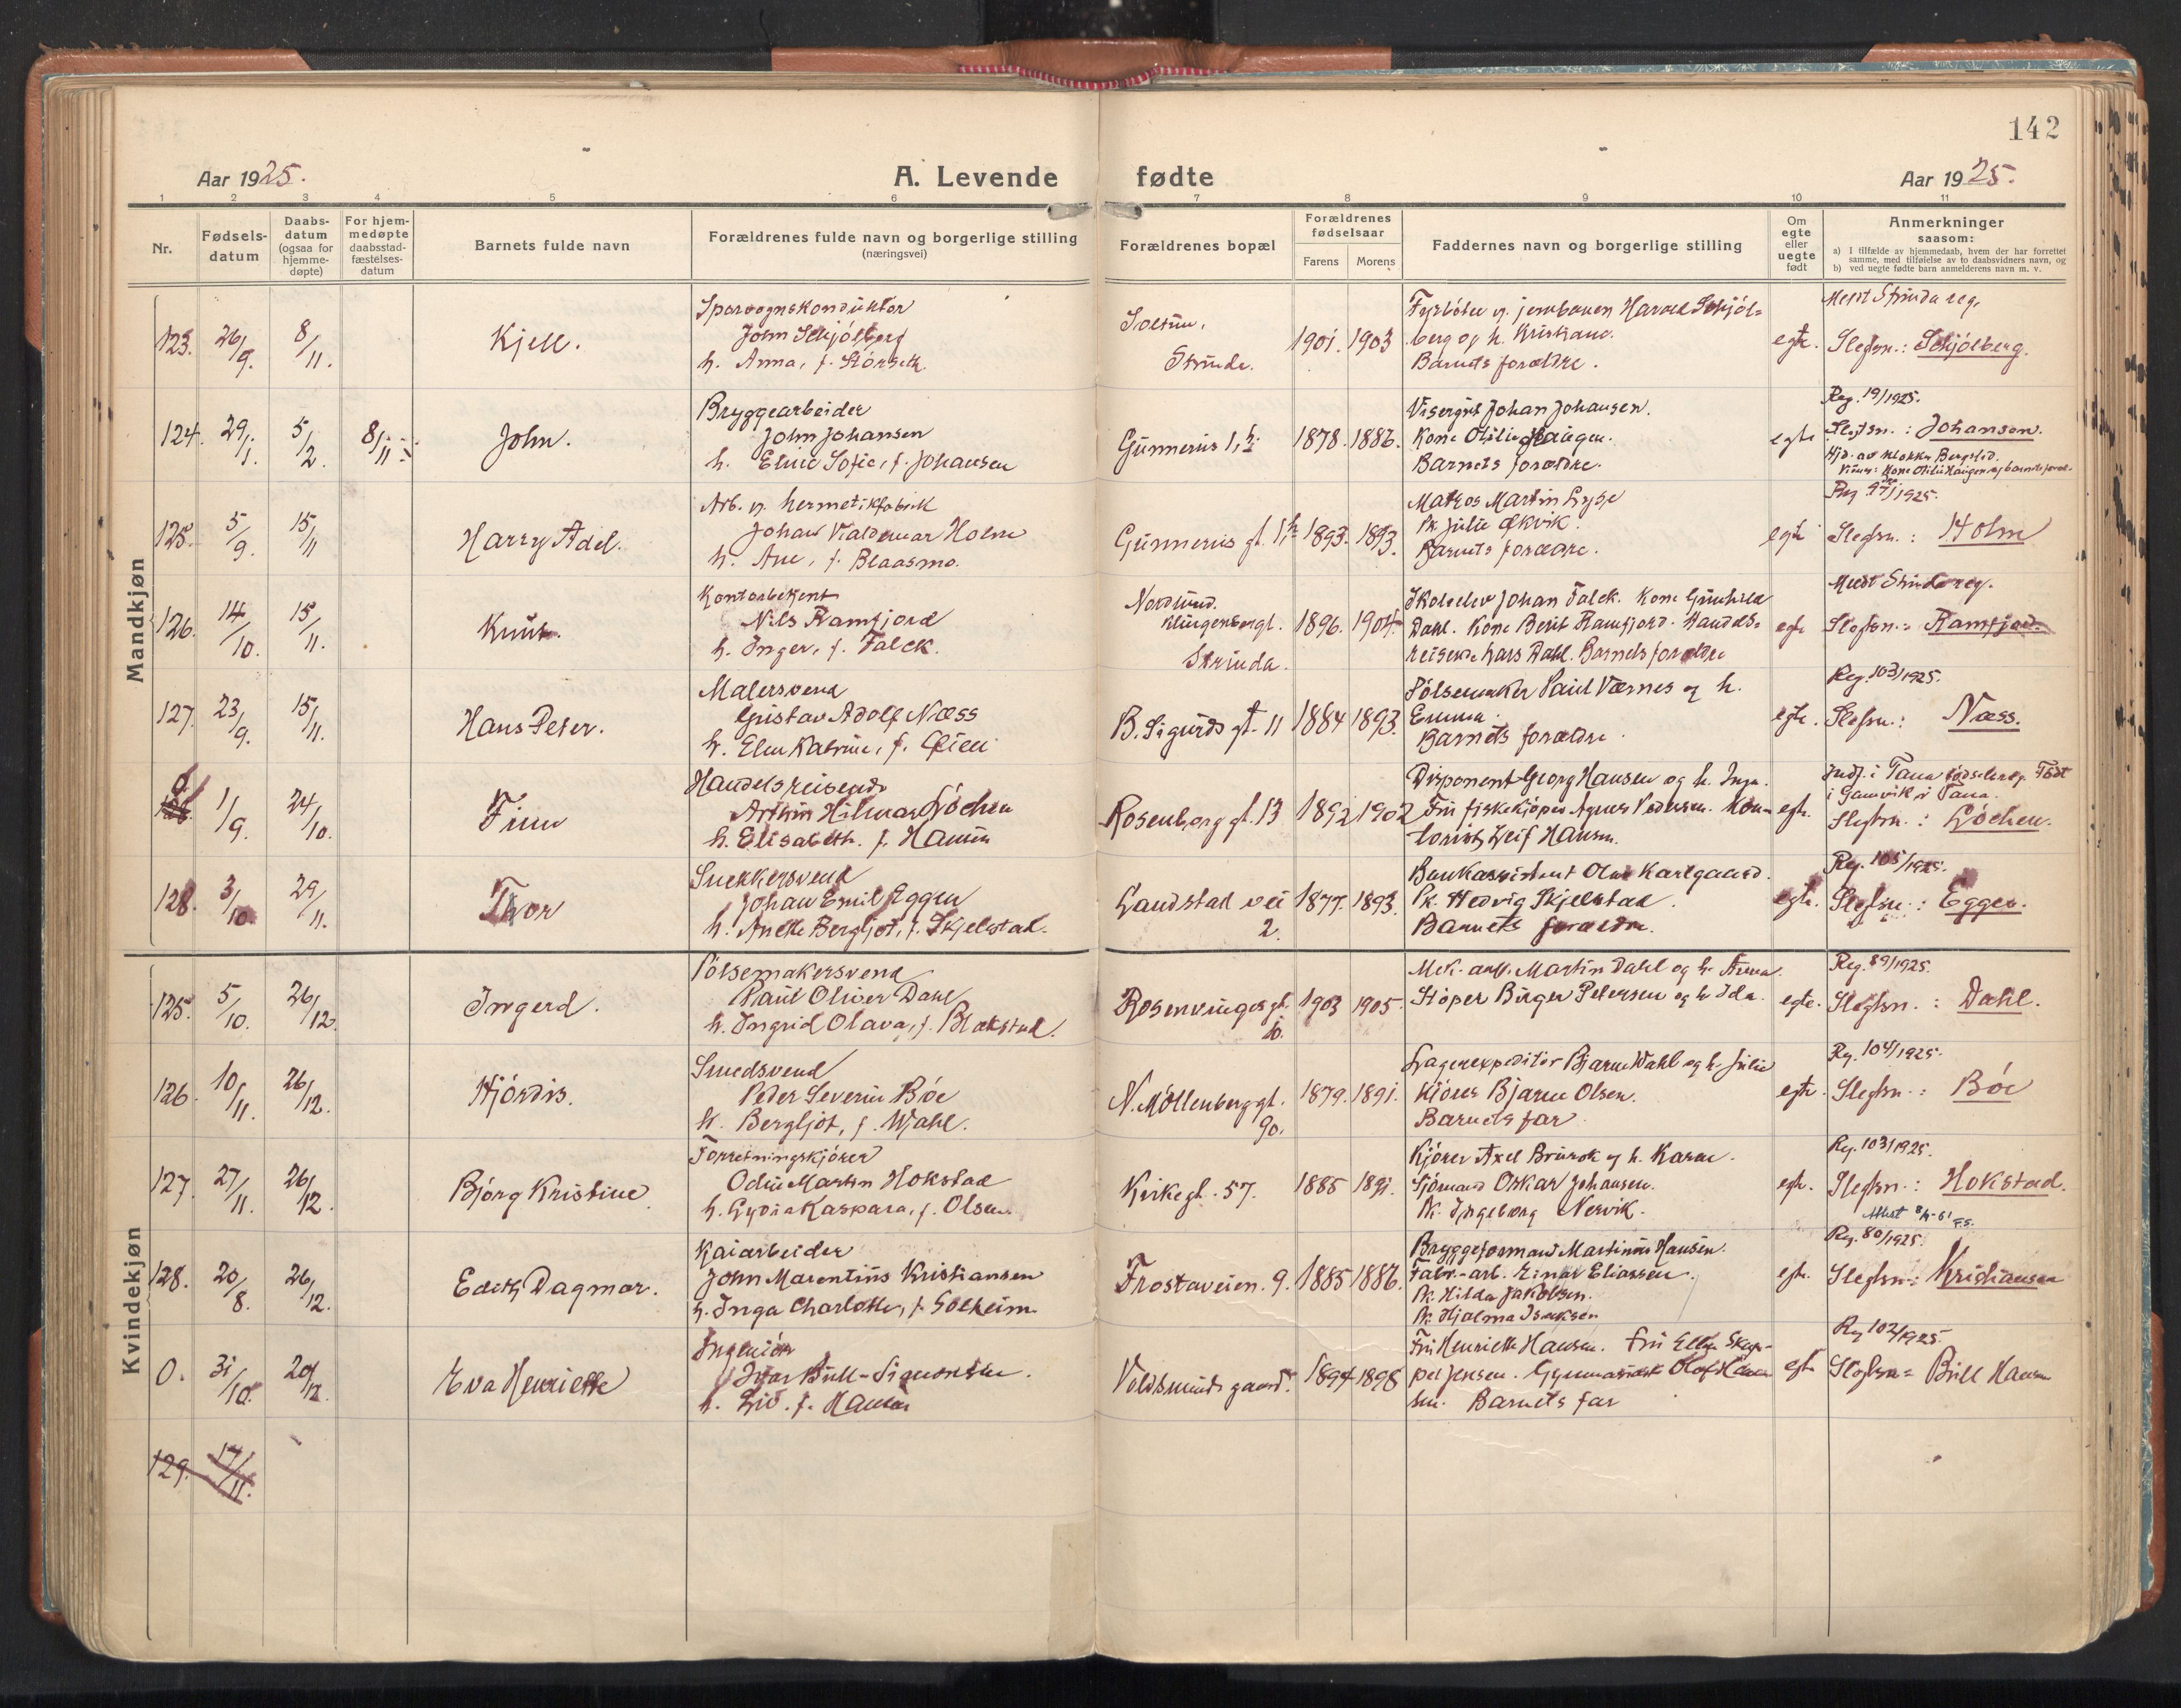 142
Aar 1925.
A. Levende fødte
Aar 1925.
1 2 3 4 5 6 7 8 9 10 11
Nr.
Fødsels-
datum
Daabs-
datum
(ogsaa for
hjemme-
døpte)
For hjem-
medøpte
daabsstad-
fæstelses-
datum
Barnets fulde navn
Forældrenes fulde navn og borgerlige stilling
(næringsvei)
Forældrenes bopæl
Forældrenes
fødselsaar
Farens Morens
Faddernes navn og borgerlige stilling
Om
egte
eller
uegte
født
Anmerkninger
saasom:
a) I tilfælde av hjemmedaab, hvem der har forrettet
samme, med tilføielse av to daabsvidners navn, og
b) ved uegte fødte barn anmelderens navn m. v.
Mandkjøn
123. 26/9. 8/11.
Kjell.
Sporvognskonduktør
John Schjölberg
h. Anna, f. Störseth.
Strinda.
1901. 1903
Fyrböter v. jernbanen Harald Schjöl-
berg og h. Kristiane.
Barnets forældre.
egte.
Meldt Strinda reg.
Slegtsn.: Schjölberg.
124. 29/1. 5/2. 8/11
John.
Bryggearbeider
John Johansen
h. Elnie Sofie, f. Johansen
Gunnerus 1, h.
1878. 1886.
Visergut Johan Johansen.
Kone Otilie Haugen.
Barnets forældre.
egte
Reg. 19/1925.
Slegtsn.: Johansen.
Hjd. av klokker Bergsted.
Vidner: Kone Otilie Haugen og barnets foræl.
125. 5/9. 15/11
Harry Adel.
Arb. v. hermetikfabrik
Johan Valdemar Holm
h. Ane, f. Blaasmo.
Gunnerus gt. 1, h
1893. 1893.
Matros Martin Lyse
Pk. Julie Økvik.
Barnets forældre.
egte
Reg. 97/1925.
Slegtsn.: Holm
126. 14/10. 15/11.
Knut.
Kontorbetjent
Nils Ramfjord
h. Inger, f. Falck.
Nordlund.
Klingenberggt.
Strinda.
1896. 1904.
Skoleelev Johan Falck. Kone Gunhild
Dahl. Kone Berit Ramfjord. Handels-
reisende Lars Dahl. Barnets forældre
egte
Meldt Strinda reg.
Slegtsn.: Ramfjord.
127. 23/9. 15/11.
Hans Peter.
Malersvend
Gustav Adolf Næss
h. Elen Katrine, f. Øien
B. Sigurds gt. 11
1884 1893.
Pølsemaker Paul Værnes og h.
Emma.
Barnets forældre.
egte.
Reg. 103/1925.
Slegtsn.: Næss.
0 1/9. 24/10.
Finn
Handelsreisende
Arthur Hilmar Löchen
h. Elisabeth. f. Hansen
Rosenborg gt. 13
1892 1902
Disponent Georg Hansen og h. Inga.
Fru fiskekjøper Agnes Pedersen. Kon-
torist Leif Hansen.
egte.
Indf. i Tana fødselsreg. Født
i Gamvik i Tana.
Slegtsn.: Löchen.
128. 3/10. 29/11.
Thor
Snekkersvend
Johan Emil Eggen
h. Anette Bergljot, f. Skjelstad.
Landstad vei
2.
1877. 1893.
Bankassistent Olav Karlgaard.
Pk. Hedvig Skjelstad.
Barnets forældre.
egte.
Reg. 105/1925.
Slegtsn.: Eggen.
Kvindekjøn
125. 5/10. 26/12.
Ingerd.
Pølsemakersvend
Paul Oliver Dahl
h. Ingrid Olava, f. Blækstad.
Rosenvinges gt.
10.
1903 1905.
Mek. arb. Martin Dahl og h. Anna.
Støper Birger Petersen og h. Ida.
egte.
Reg. 89/1925.
Slegtsn.: Dahl.
126. 10/11. 26/12.
Hjördis.
Smedsvend
Peder Severin Böe
h. Bergljot, f. Wahl.
N. Möllenberg gt.
90.
1879. 1891.
Lagerexpeditör Bjarne Wahl og h. Julie
Kjörer Bjarne Olsen.
Barnets far.
egte.
Reg. 104/1925.
Slegtsn.: Böe
127. 27/11. 26/12.
Bjørg Kristine
Forretningskjörer
Odin Martin Hokstad
h. Lydia Kaspara, f. Olsen.
Kirkegt. 57.
1885 1891.
Kjörer Axel Brurok og h. Karen.
Sjömand Oskar Johansen.
Pk. Ingeborg Nervik.
egte.
Reg. 103/1925.
Slegtsn.: Hokstad.
128. 20/8. 26/12.
Edith Dagmar.
Kaiarbeider
John Marentius Kristiansen
h. Inga Charlotte, f. Solheim
Frostaveien. 9.
1885 1886.
Bryggeformand Martinus Hansen.
Fabr.-arb. Einar Eliassen.
Pk. Hilda Jakobsen.
Pk. Hjalma Isaksen
egte.
Reg. 80/1925.
Slegtsn.: Kristiansen
0. 31/10. 20/12.
Eva Henriette
Ingeniör
Ivar Bull-Simonsen.
h. Liv. f. Hansen
Voldsminde gaard.
1894 1898
Fru Henriette Hansen. Fru Ellen Skap-
pel Jensen. Gymnasiast Olaf Han-
sen. Barnets far
egte
Reg. 102/1925.
Slegtsn.: Bull Hansen
129. 17/11.